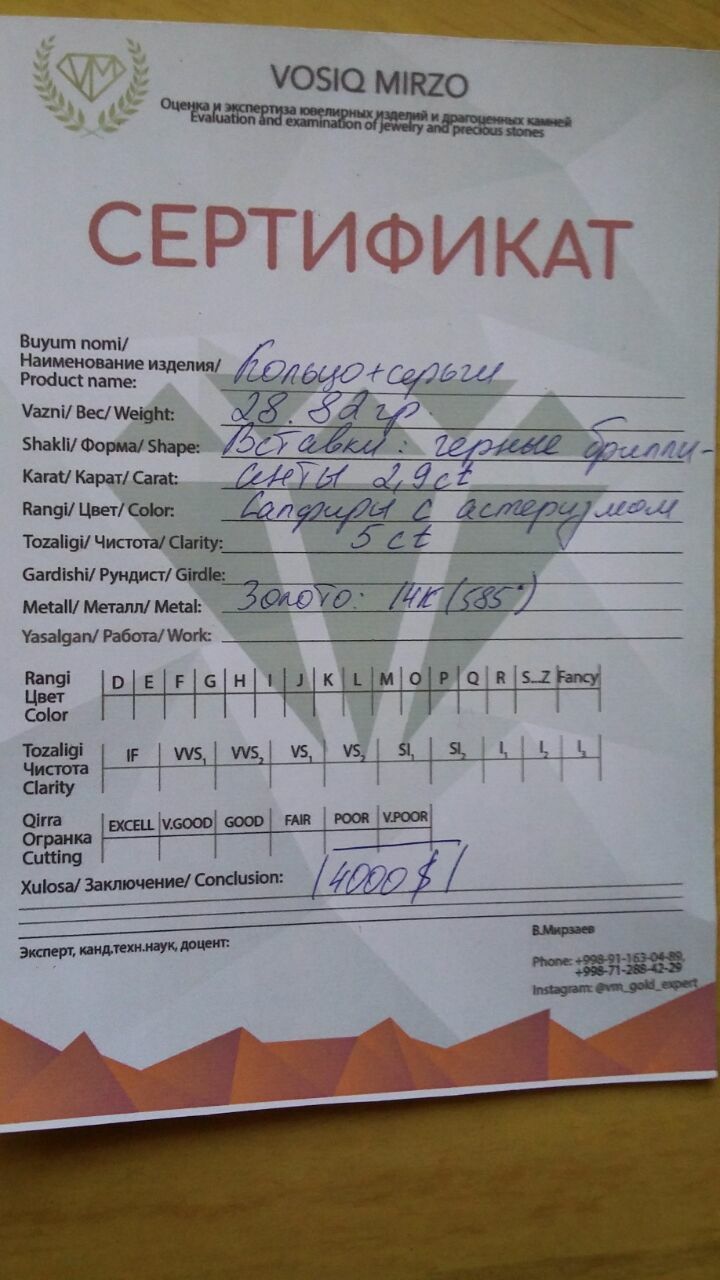 VM
VOSIQ MIRZO
Оценка и экспертиза ювелирных изделий и драгоценных камней
Evaluation and examination of jewelry and precious stones
СЕРТИФИКАТ
Buyum nomi/
Наименование изделия/
Product name: Кольцо+серьги
Vazni/ Вес/ Weight: 28.82гр.
Shakli/ Форма/ Shape: Вставки: черные брилли-
Karat/ Карат/ Carat: анты 2,9ct
Rangi/ Цвет/ Color: Сапфиры с астеризмом
Tozaligi/ Чистота/ Clarity: 5 ct
Gardishi/ Рундист/ Girdle:
Metall/ Металл/ Metal: Золото: 14К (585°)
Yasalgan/ Работа/ Work:
Rangi
Цвет
Color
D E F G H I J K L M O P Q R S...Z Fancy
Tozaligi
Чистота
Clarity
IF VVS1 VVS2 VS1 VS2 SI1 SI2 I1 I2 I3
Qirra
Огранка
Cutting
EXCELL V.GOOD GOOD FAIR POOR V.POOR
Xulosa/ Заключение/ Conclusion: /4000$/
Эксперт, канд.техн.наук, доцент:
В.Мирзаев
Phone: +998-91-163-04-89,
+998-71-288-42-29
Instagram: @vm_gold_expert